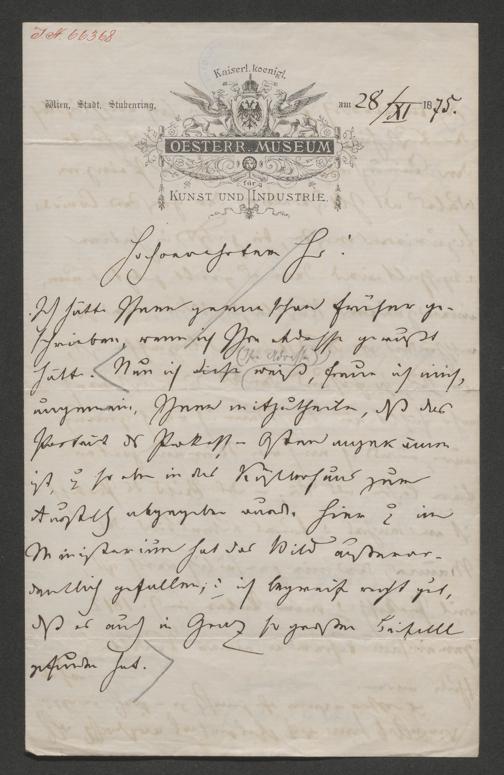 J. N. 66368
Kaiserl. koenigl.
Wien, Stadt, Stubenring,
am 28/XI 1875.
OESTERR. MUSEUM
für
KUNST UND INDUSTRIE.
Hochverehrter Hr!
Ich hätte Ihnen gerne schon früher ge-
schrieben, wenn ich Ihre Adresse gewußt
hätte. Nun ich diese (Ihre Adresse) weiß, freue ich mich,
ungemein, Ihnen mitzutheilen, dß das
Portrait des Prokesch-Osten angekommen
ist, & so eben in das Künstlerhaus zum
abgegeben wurde. Hier & im
Ministerium hat das Bild außeror-
dentlich gefallen; & ich begreife recht gut,
dß es auch in Graz so großen Beifall
gefunden hat.